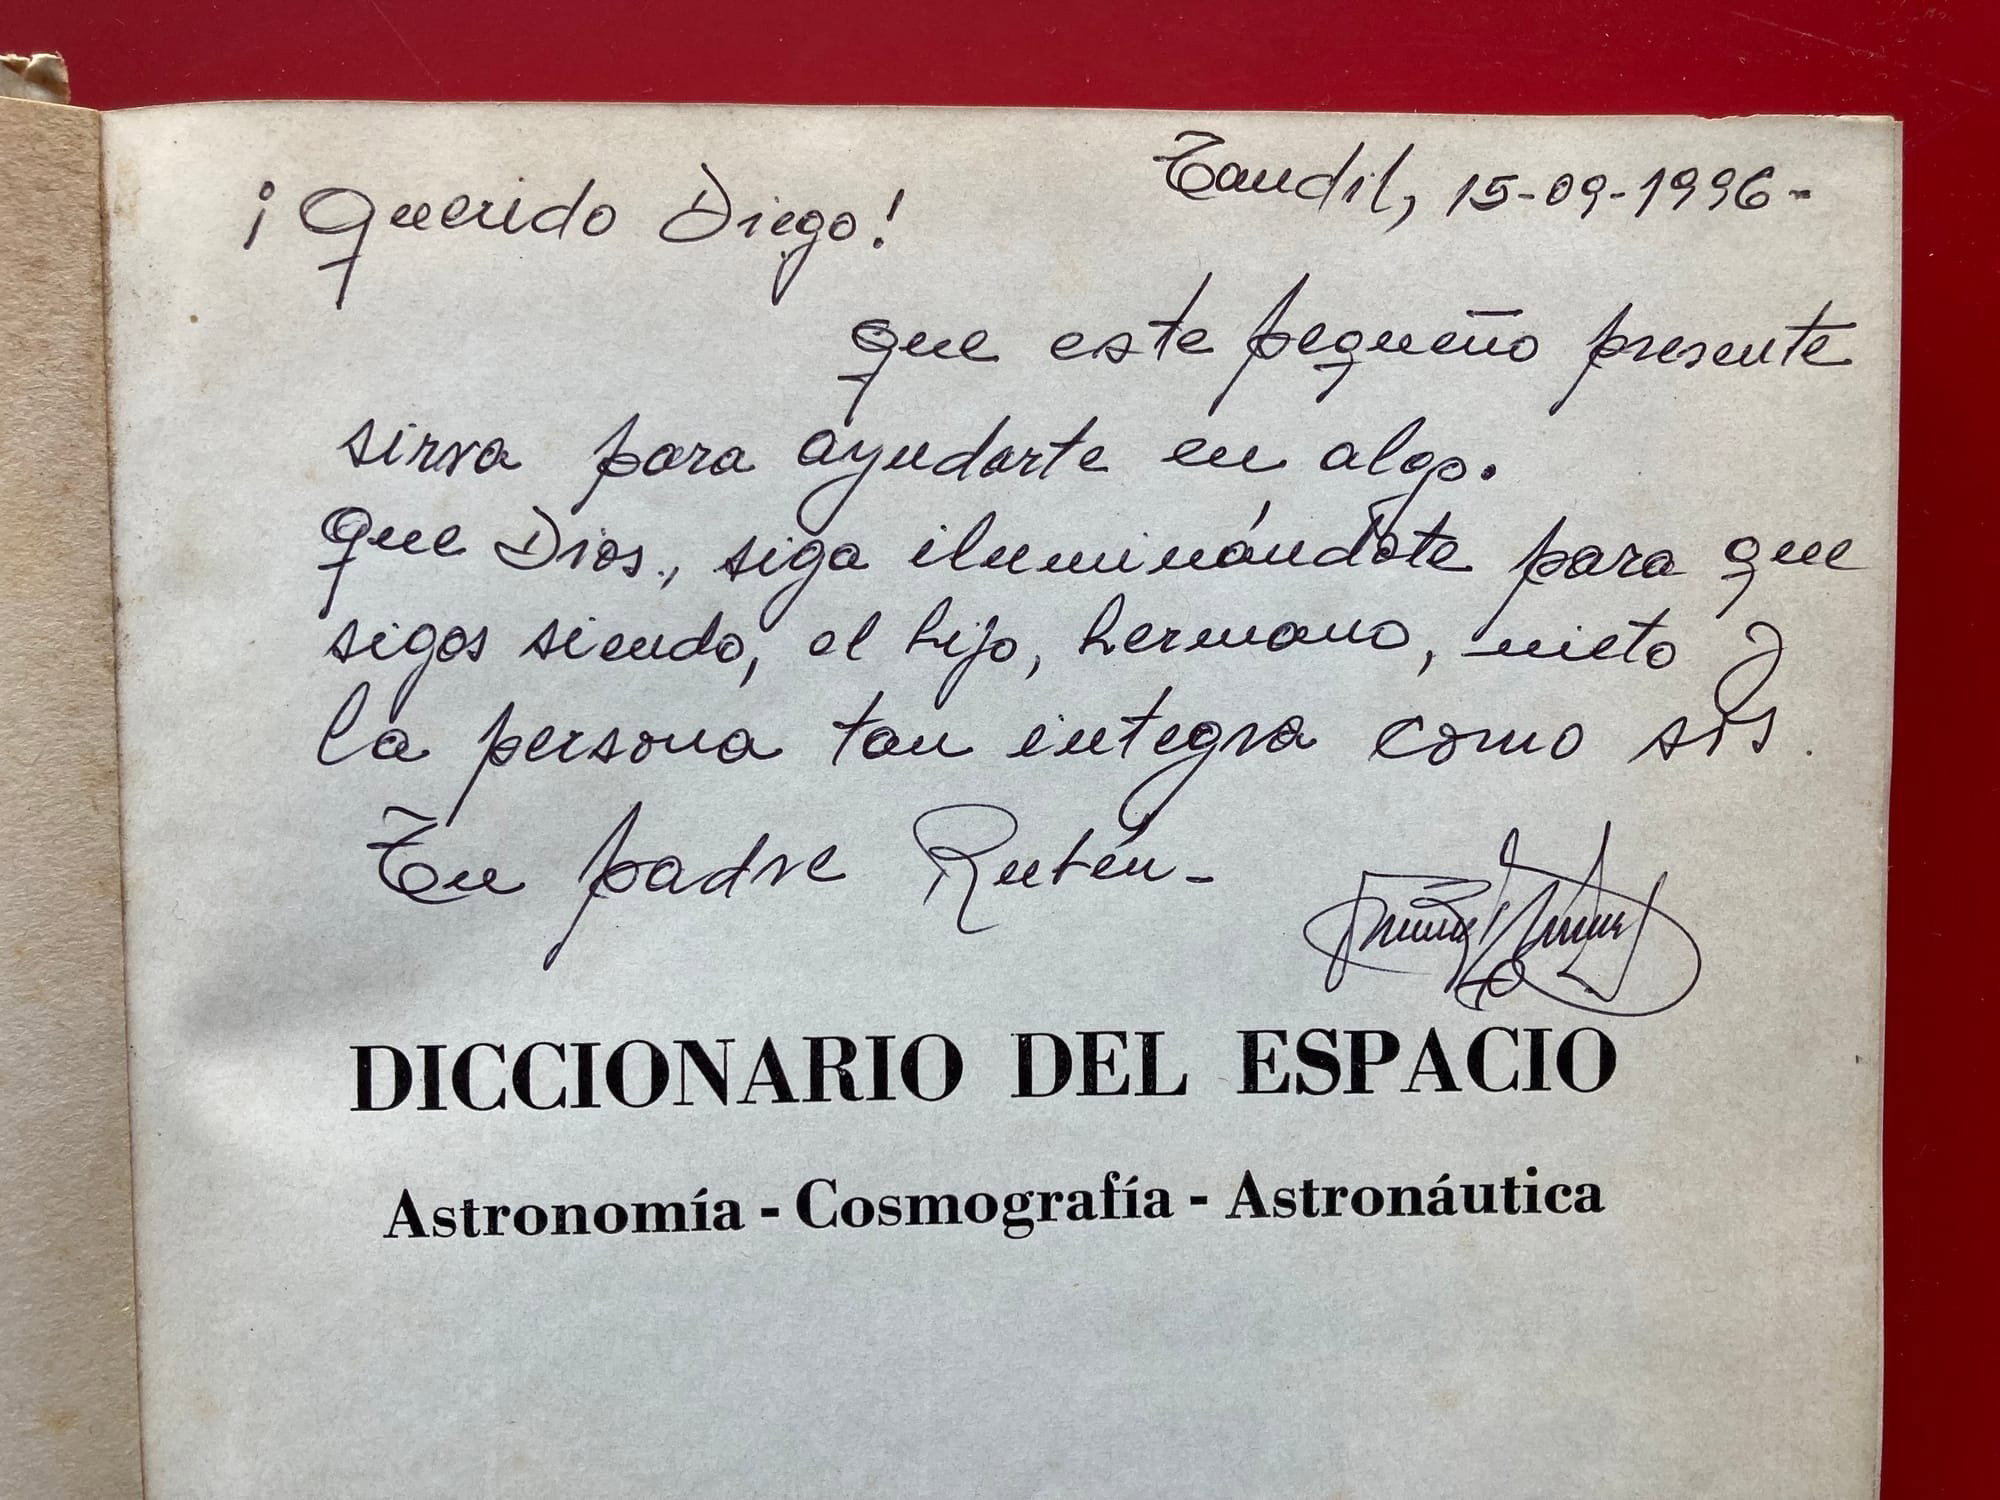 Tandil, 15-09-1996-
¡Querido Diego!
que este pequeño presente
sirva para ayudarte en algo.
Que Dios, siga iluminándote para que
sigas siendo, el hijo, hermano, nieto y
la persona tan integra como sos.
Tu padre Rubén-
DICCIONARIO DEL ESPACIO
Astronomía - Cosmografía - Astronáutica